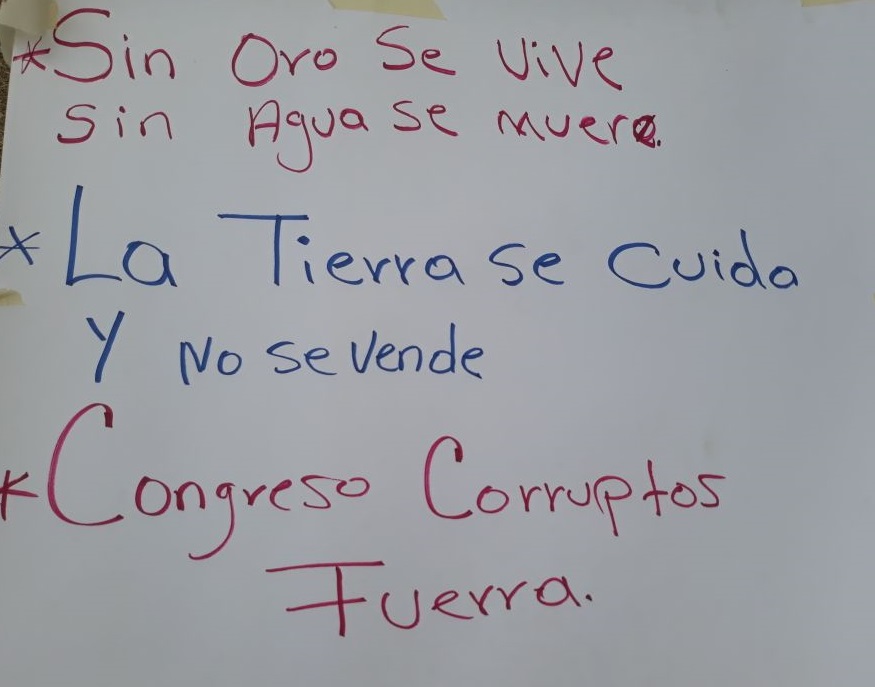 *Sin Oro Se Vive
Sin Agua se muere.
*La Tierra se Cuida
Y No se Vende
*Congreso Corruptos
Fuerra.